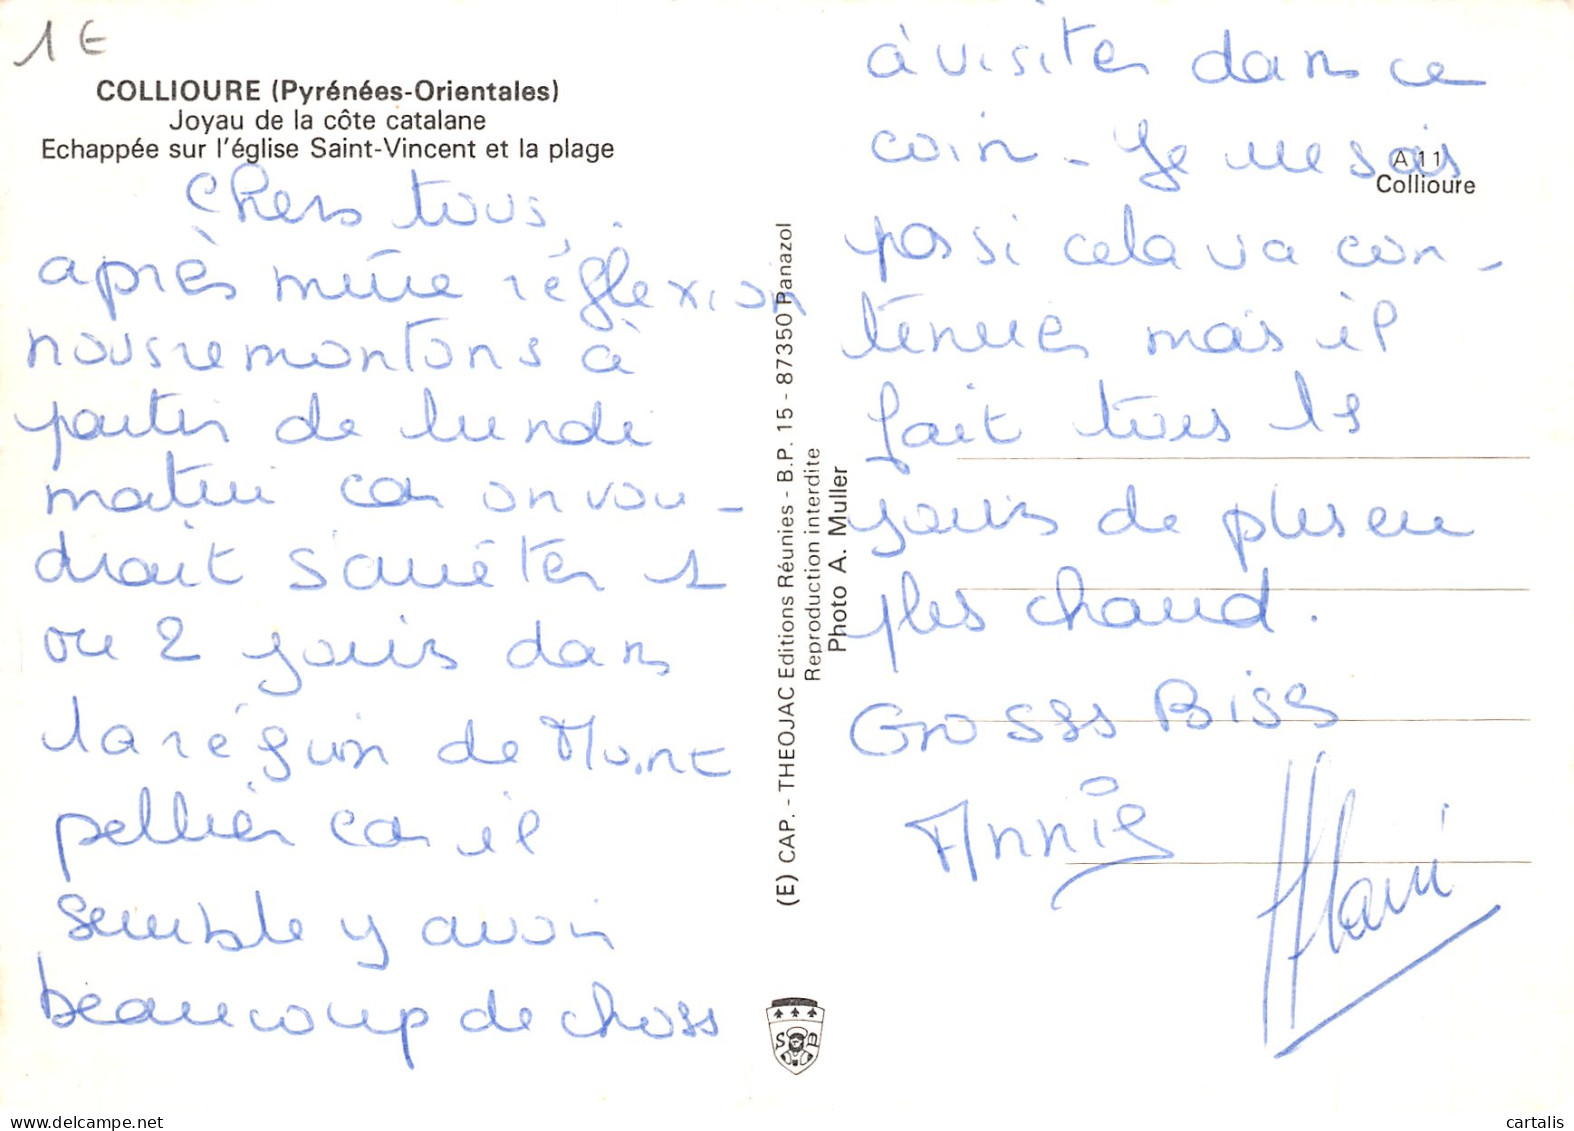 1 E
COLLIOURE (Pyrénées-Orientales)
Joyau de la côte catalane
Echappée sur l'église Saint-Vincent et la plage
Chers tous,
après mûre réflexion
nous remontons à
partir de lundi
matin car on vou-
drait s'arrêter 1
ou 2 jours dans
la région de Mont
pellier car il
semble y avoir
beaucoup de choses
(E) CAP. - THEOJAC Editions Réunies - B.P. 15 - 87350 Panazol
Reproduction interdite
Photo A. Muller
S P
à visiter dans ce
coin - Je ne sais
A 11
Collioure
pas si cela va con-
tinuer mais il
fait tous les
jours de plus en
plus chaud.
Grosses Bises
Annie
Alain
cartalis
www.delcampe.net